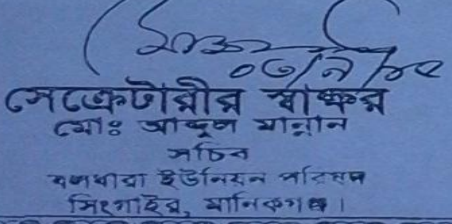 সেক্রেটারীর স্বাক্ষর
মোঃ আব্দুল মান্নান
সচিব
ইউনিয়ন পরিষদ
সিংগাইর, মানিকগঞ্জ।